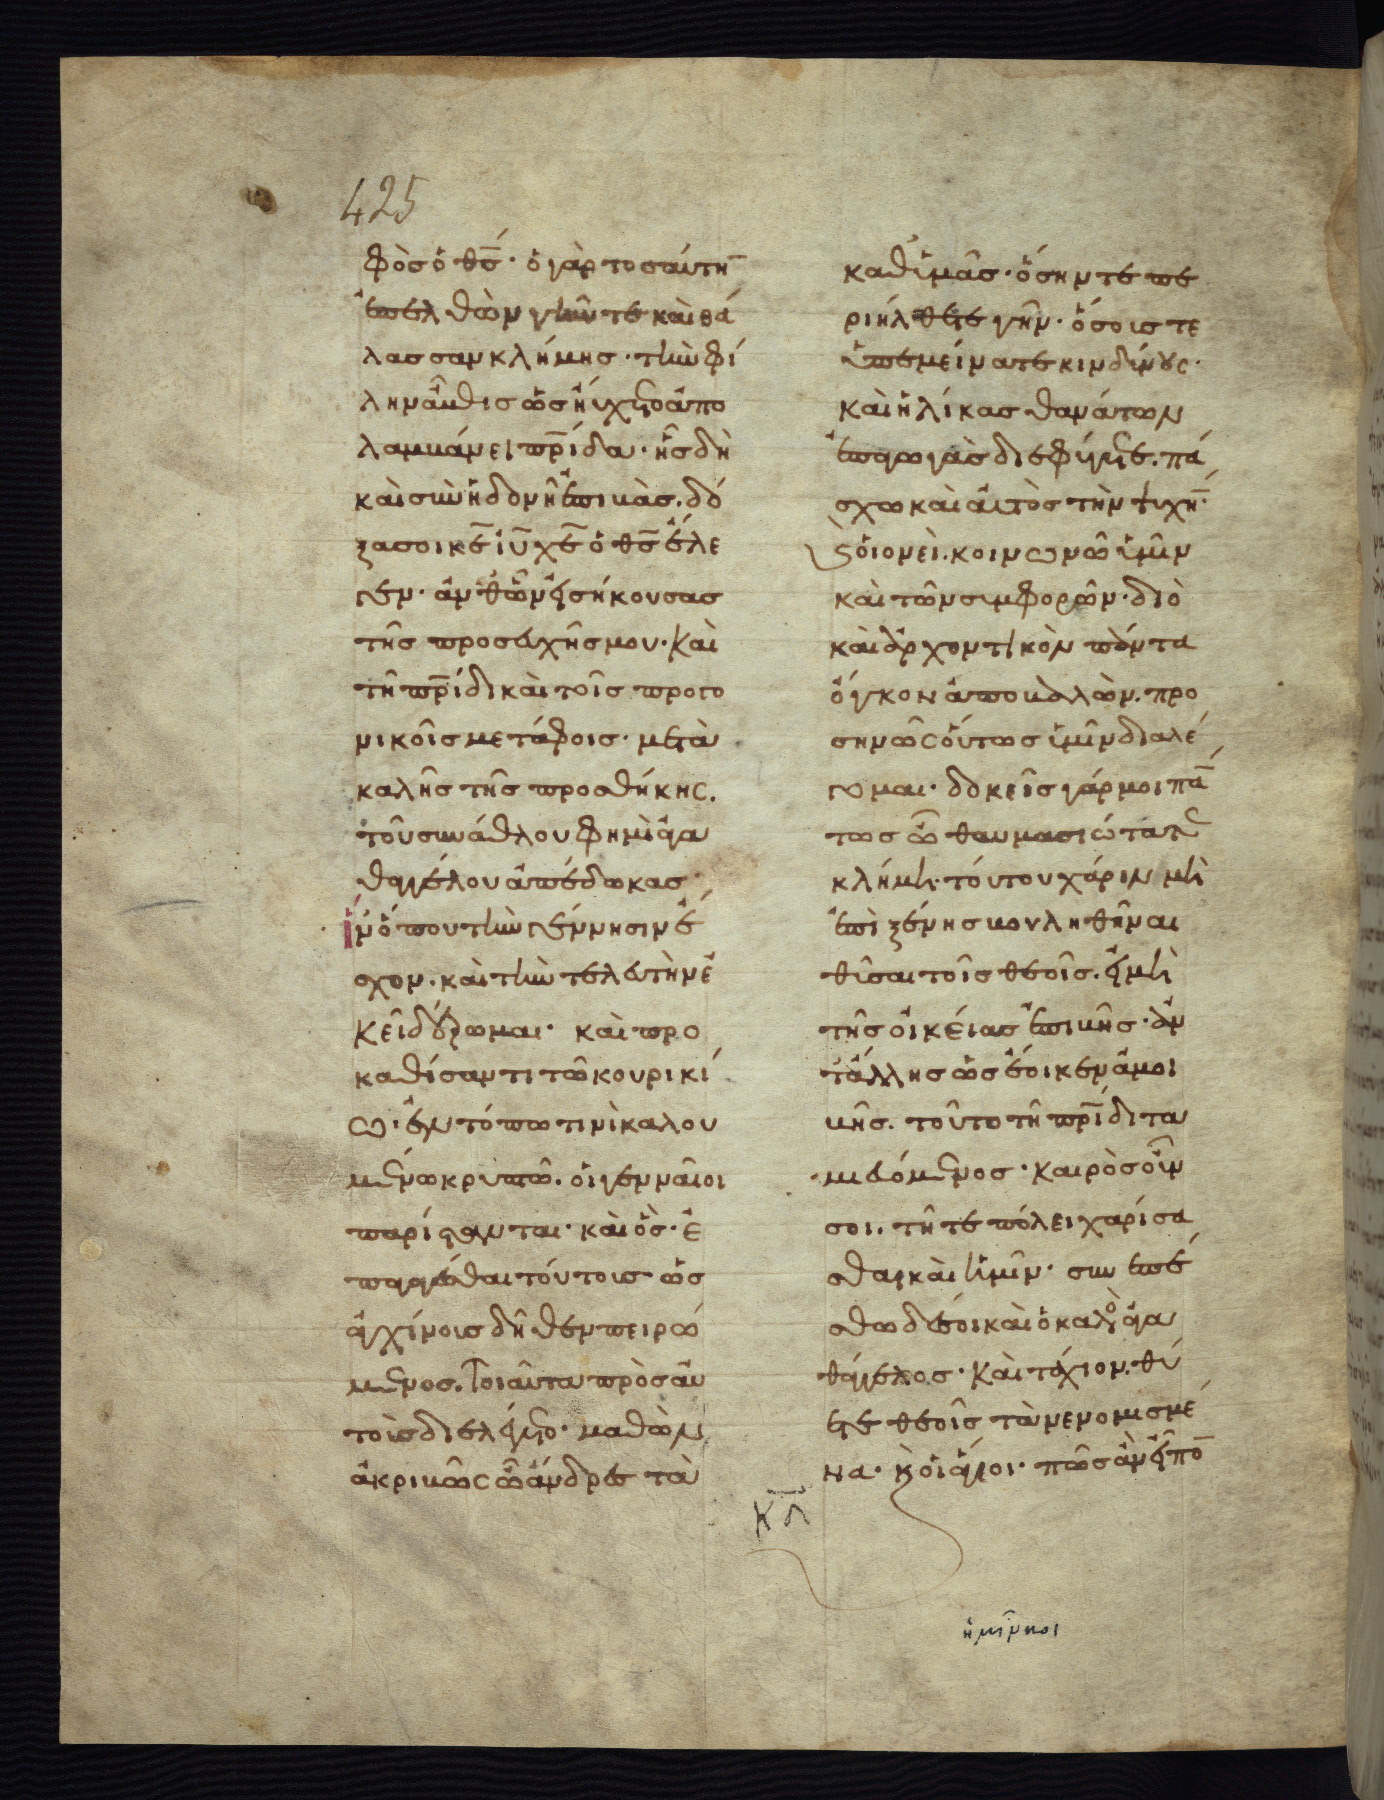 425
φὸσ ὁ θ̅σ̅· ὁ γὰρ τοσαύτην
ἐπελθὼν γῆν τε καὶ θά
λασσαν κλήμης· τὴν φί
λην αὖθις ὡς ηὔχετο ἀπο
λαμβάνει πρ̅ίδα· ἧς δὴ
καὶ σὺν ἡδονῆ ἐπιβὰς. δό
ξα σοι κ̅ε̅ ἰ̅υ̅ χ̅ε̅ ὁ θ̅σ̅ ἔλε
γεν· ἀνθ' ὧν εἰσήκουσας
τῆς προσευχῆς μου· καὶ
τῆ πρ̅ίδι καὶ τοῖς προγο
νικοῖς με τάφοις· μετὰ
καλῆς τῆς προσθήκης.
τοῦ συνάθλου φημὶ ἀγα
θαγγέλου ἀπέδωκας·
ἵν' ὅπου τὴν γέννησιν ἔ
σχον. καὶ τὴν τελευτὴν ἐ
κεῖ δέξωμαι· καὶ προ
καθίσαντι τῶ κουρικί
ω· ἐν τόπω τινὶ καλου
μένω κρυπτῶ. οἱ γενναῖοι
παρίστανται· καὶ ὃς· ἐ
παγγέσθαι τούτοις ὡς
ἀγχίνοις δῆθεν πειρώ
μενος. τοιαῦτα πρὸς αὐ
τοὺς διελέγετο· μαθὼν
ἀκριβῶς ὦ ἄνδρες τὰ
καθ' ὑμᾶς· ὅσην τε πε
ριήλθετε γῆν· ὅσοις τε
ὑπεμείνατε κινδύνους·
καὶ ἡλίκας θανάτων
ἐπαγωγὰς διεφύγετε. πά
σχω καὶ αὐτὸς τὴν ψυχήν·
καὶ οἱονεὶ. κοινωνῶ ὑμῖν
καὶ τῶν συμφορῶν· διὸ
καὶ ἀρχοντικὸν πάντα
ὄγκον ἀποβαλὼν. προ
σηνῶς οὕτως ὑμῖν διαλέ
γομαι· δοκεῖς γάρ μοι πάν
τως ὦ θαυμασιώτατε
κλήμη. τούτου χάριν μὴ
ἐπὶ ξένης βουληθῆναι
θῦσαι τοῖς θεοῖς. εἰ μὴ
τῆς οἰκείας ἐπιβῆς· ἀν
τ' ἄλλης ὡς ἔοικεν ἀμοι
βῆς. τοῦτο τῆ πρ̅ίδι τα
μιευόμενος· καιρὸς οὖν
σοι. τῆ τε πόλει χαρίσα
σθαι καὶ ἡμῖν· συνεπέ
σθω δέ σοι καὶ ὁ καλὸς ἀγα
θάγγελος· καὶ τάχιον. θύ
ετε θεοῖς τὰ νενομισμέ
να· καὶ οἱ ἅγιοι· πῶς ἂν εἶπον
ἡμῖν οι